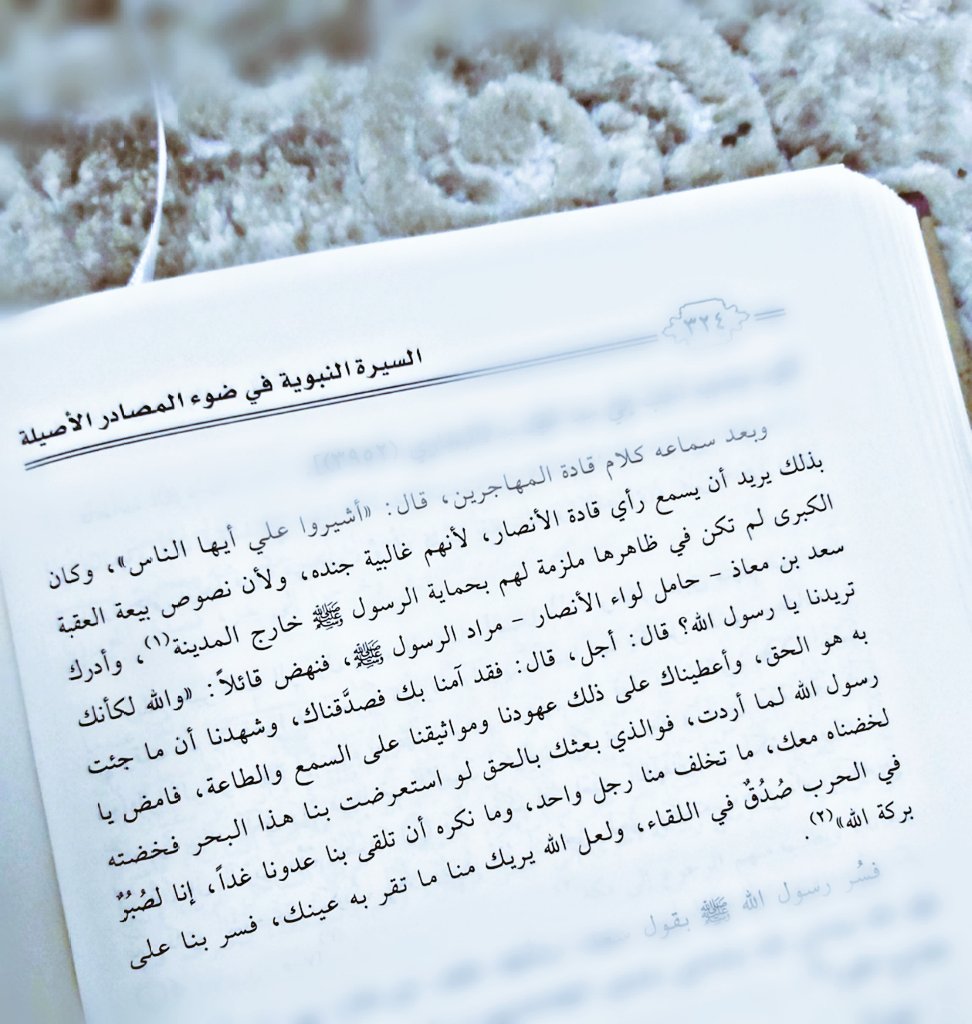 ٣٢٤
السيرة النبوية في ضوء المصادر الأصيلة
(٣٩٥٢)].
وبعد سماعه كلام قادة المهاجرين، قال: «أشيروا علي أيها الناس»، وكان
بذلك يريد أن يسمع رأي قادة الأنصار، لأنهم غالبية جنده، ولأن نصوص بيعة العقبة
الكبرى لم تكن في ظاهرها ملزمة لهم بحماية الرسول ﷺ خارج المدينة(١)، وأدرك
سعد بن معاذ - حامل لواء الأنصار - مراد الرسول ﷺ، فنهض قائلاً: «والله لكأنك
تريدنا يا رسول الله؟ قال: أجل، قال: فقد آمنا بك فصدَّقناك، وشهدنا أن ما جئت
به هو الحق، وأعطيناك على ذلك عهودنا ومواثيقنا على السمع والطاعة، فامض يا
رسول الله لما أردت، فوالذي بعثك بالحق لو استعرضت بنا هذا البحر فخضته
لخضناه معك، ما تخلف منا رجل واحد، وما نكره أن تلقى بنا عدونا غداً، إنا لصُبُرٌ
في الحرب صُدُقٌ في اللقاء، ولعل الله يريك منا ما تقر به عينك، فسر بنا على
بركة الله»(٢).
فسُر رسول الله ﷺ بقول